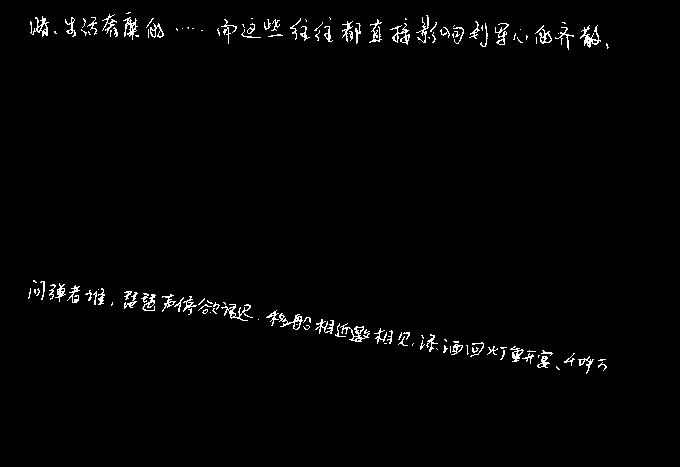 賭、生活奢靡的……而这些往往都直接影响到军心的齐散、
问弹者谁，琵琶声停欲语迟.移船相近邀相见,添酒回灯重开宴、千呼万